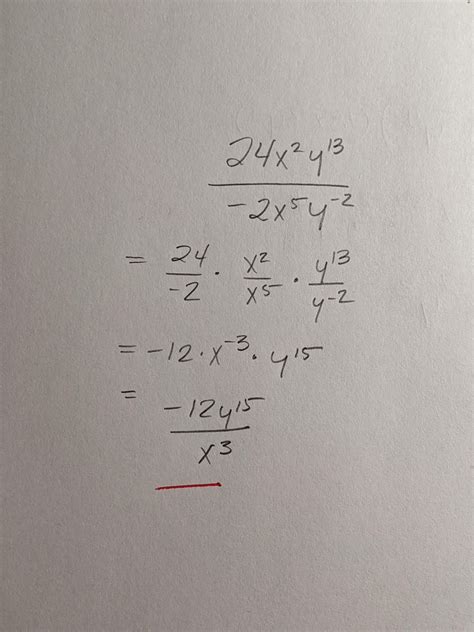 24x²y¹³
-2x⁵y⁻²
= 24/-2 · x²/x⁵ · y¹³/y⁻²
= -12 · x⁻³ · y¹⁵
= -12y¹⁵
x³